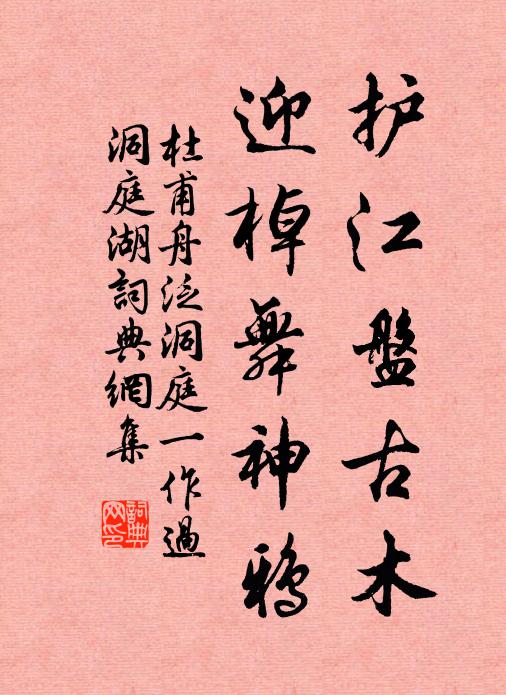 护江盤古木
迎棹舞神鸦
杜甫舟泛洞庭一作過
洞庭湖詞典網集
詞典网印